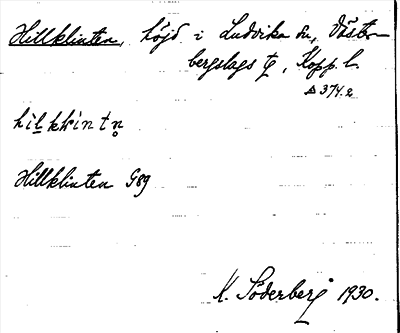 Hillklinten, höjd i Ludvika sn, Väster-
bergslags tg, Kopp. l.
374.2
Hillklinten G89
K. Söderberg 1930.